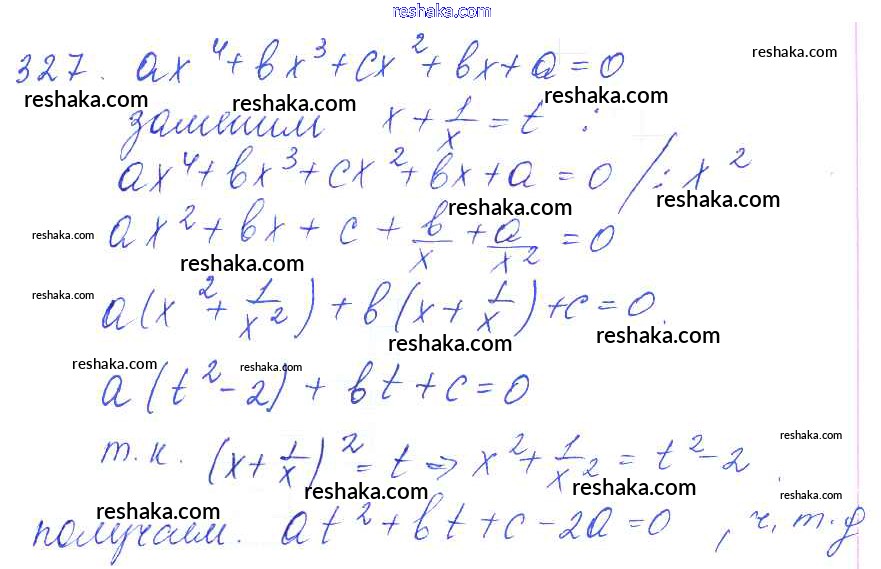 reshaka.com
327. ax⁴ + bx³ + cx² + bx + a = 0
reshaka.com
reshaka.com reshaka.com reshaka.com
заменим x + 1/x = t :
ax⁴ + bx³ + cx² + bx + a = 0 / : x²
reshaka.com reshaka.com
reshaka.com
ax² + bx + c + b/x + a/x² = 0
reshaka.com
reshaka.com
a(x² + 1/x²) + b(x + 1/x) + c = 0.
reshaka.com reshaka.com
reshaka.com reshaka.com reshaka.com
a(t² - 2) + bt + c = 0
reshaka.com
т.к. (x + 1/x)² = t => x² + 1/x² = t² - 2
reshaka.com reshaka.com
reshaka.com reshaka.com
получаем. at² + bt + c - 2a = 0 , ч.т.д